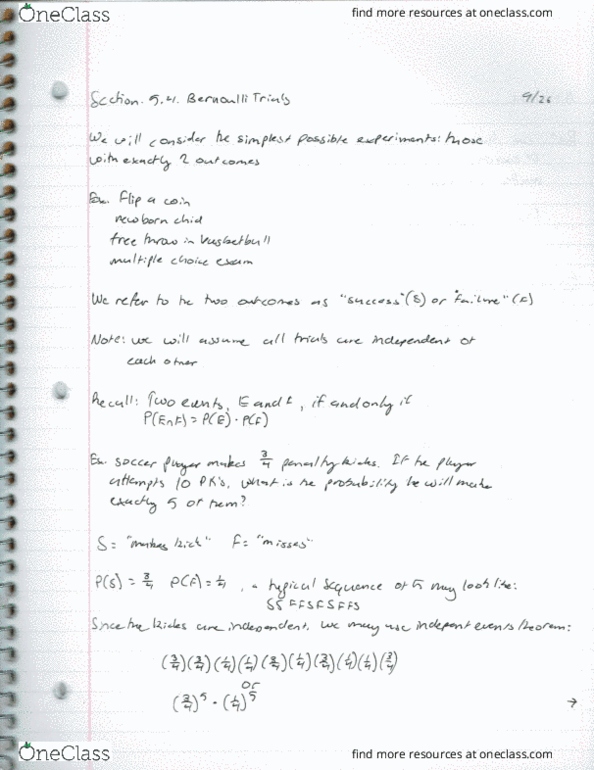 OneClass
find more resources at oneclass.com
Section. 5.4. Bernoulli Trials
9/26
We will consider the simplest possible experiments: those
with exactly 2 outcomes
Ex. Flip a coin
newborn chid
free throw in basketball
multiple choice exam
We refer to the two outcomes as "success" (S) or "failure" (F)
Note: we will assume all trials are independent of
each other
Recall: Two events, E and F, if and only if
P(E∩F) = P(E) · P(F)
Ex. soccer player makes 3/4 penalty kicks. If the player
attempts 10 PK's, what is the probability he will make
exactly 5 of them?
S = "makes kick" F = "misses"
P(S) = 3/4 P(F) = 1/4 , a typical sequence of 5 may look like:
SSFFSFSFFS
Since the kicks are independent, we may use indepent events theorem:
(3/4)(3/4)(1/4)(1/4)(3/4)(1/4)(3/4)(1/4)(1/4)(3/4)
or
(3/4)^5 · (1/4)^5
→
OneClass
find more resources at oneclass.com